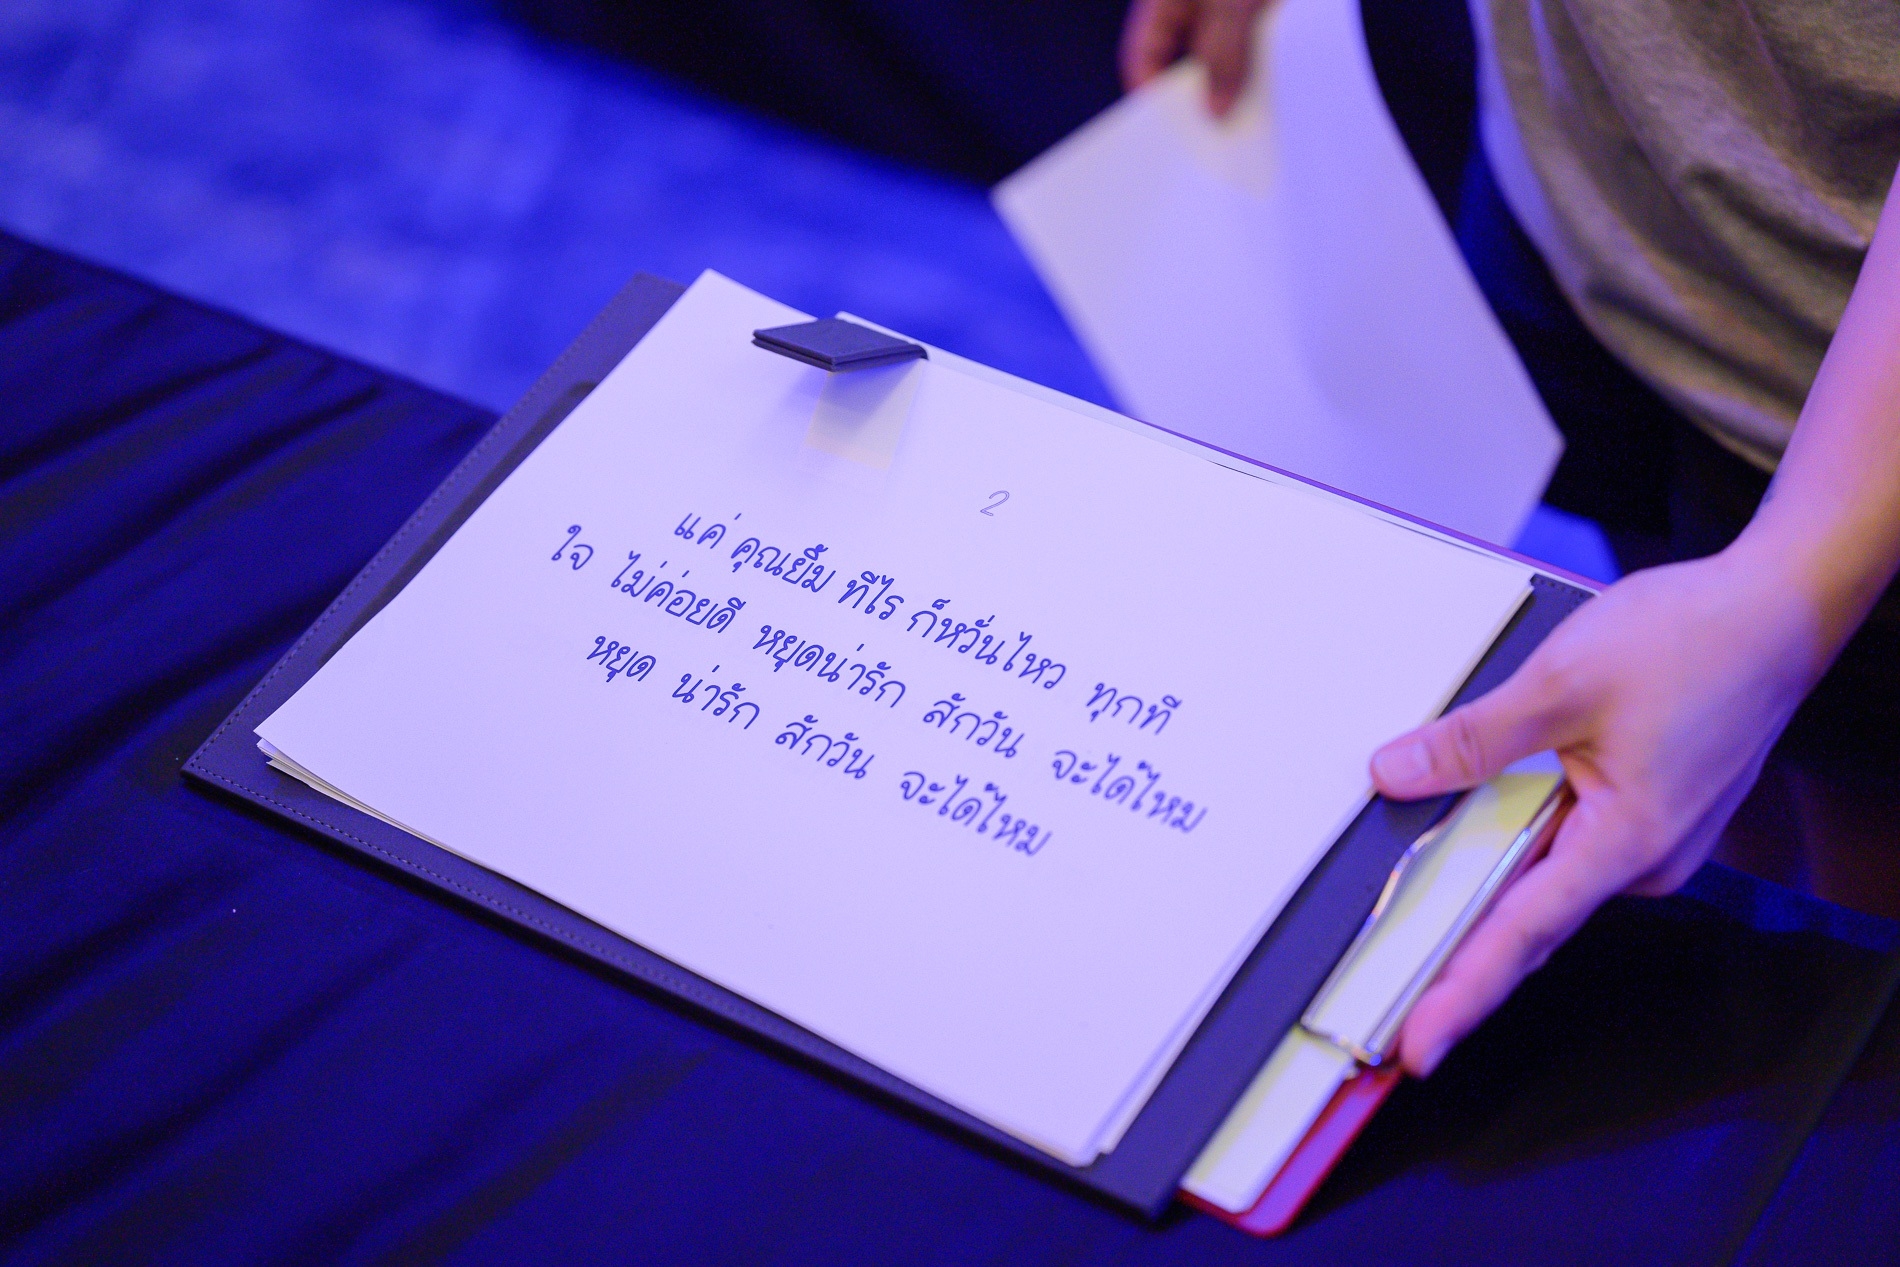 2
แค่ คุณยิ้ม ทีไร ก็หวั่นไหว ทุกที
ใจ ไม่ค่อยดี หยุดน่ารัก สักวัน จะได้ไหม
หยุด น่ารัก สักวัน จะได้ไหม